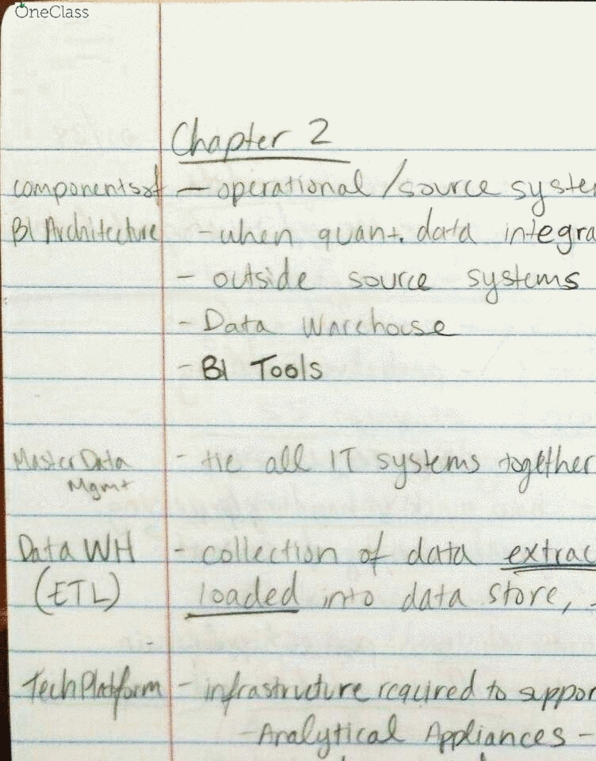 OneClass
Chapter 2
components of - operational/source syste
BI Architecture - when quant. data integra
- outside source systems
- Data Warehouse
- BI Tools
Master Data - tie all IT systems together
Mgmt
Data WH - collection of data extrac
(ETL) loaded into data store,
Tech Platform - infrastructure required to suppor
- Analytical Appliances -